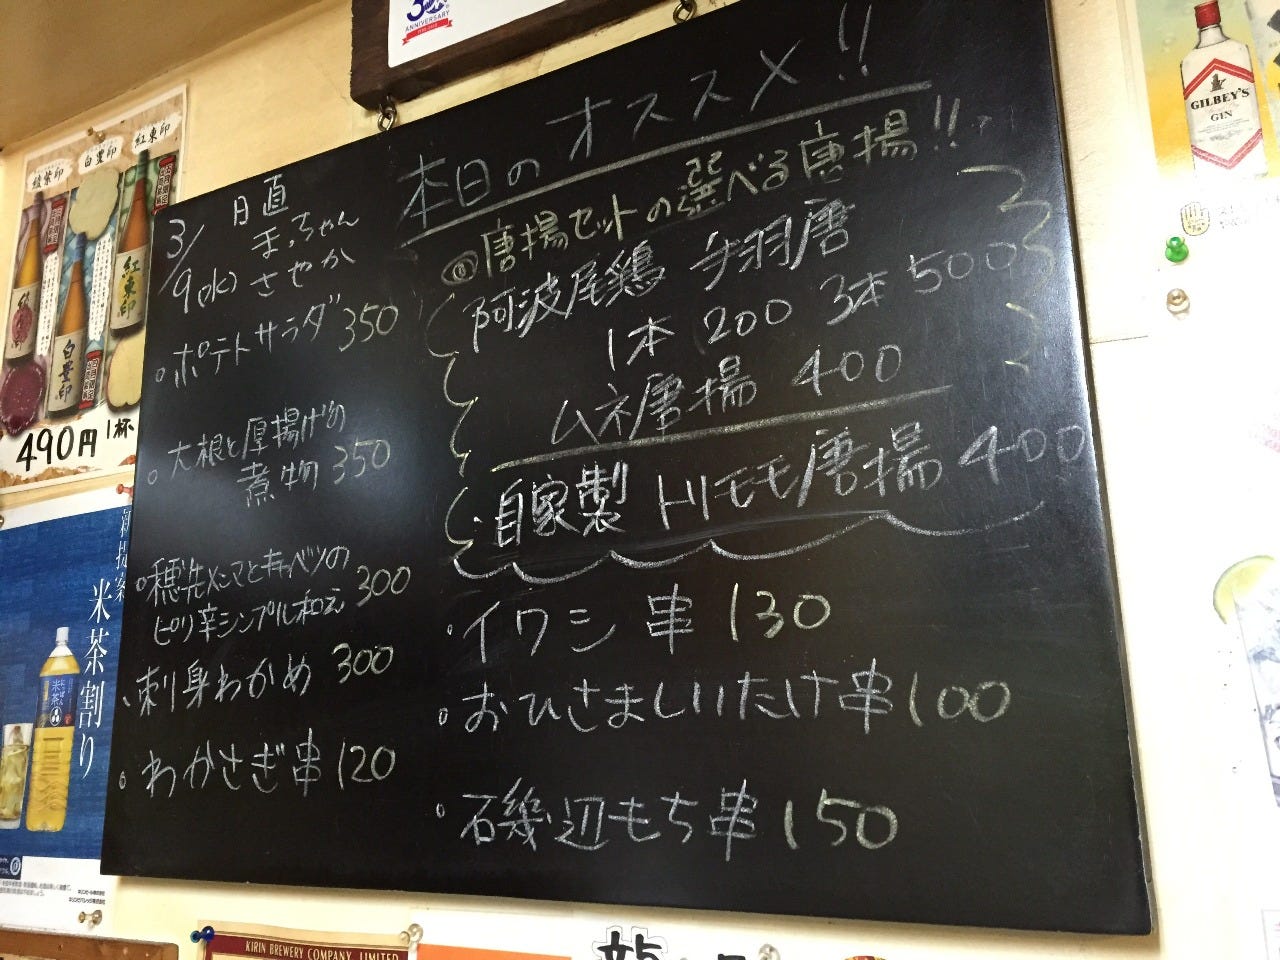 本日のオススメ!!
3/9(水)
日直
まっちゃん
さやか
ポテトサラダ 350
大根と厚揚げの
煮物 350
穂先メンマとキャベツの
ピリ辛シンプル和え 300
刺身わかめ 300
わかさぎ串 120
唐揚セットの選べる唐揚!!
阿波尾鶏 手羽唐
1本 200 3本 500
ムネ唐揚 400
自家製 トリモモ唐揚 400
イワシ串 130
おひさましいたけ串 100
石磯辺もち串 150
綾紫印
白豊印
紅東印
紅東印
白豊印
490円 1杯
米茶割り
米茶
ANNIVERSARY
GILBEY'S
GIN
KIRIN BREWERY COMPANY, LIMITED